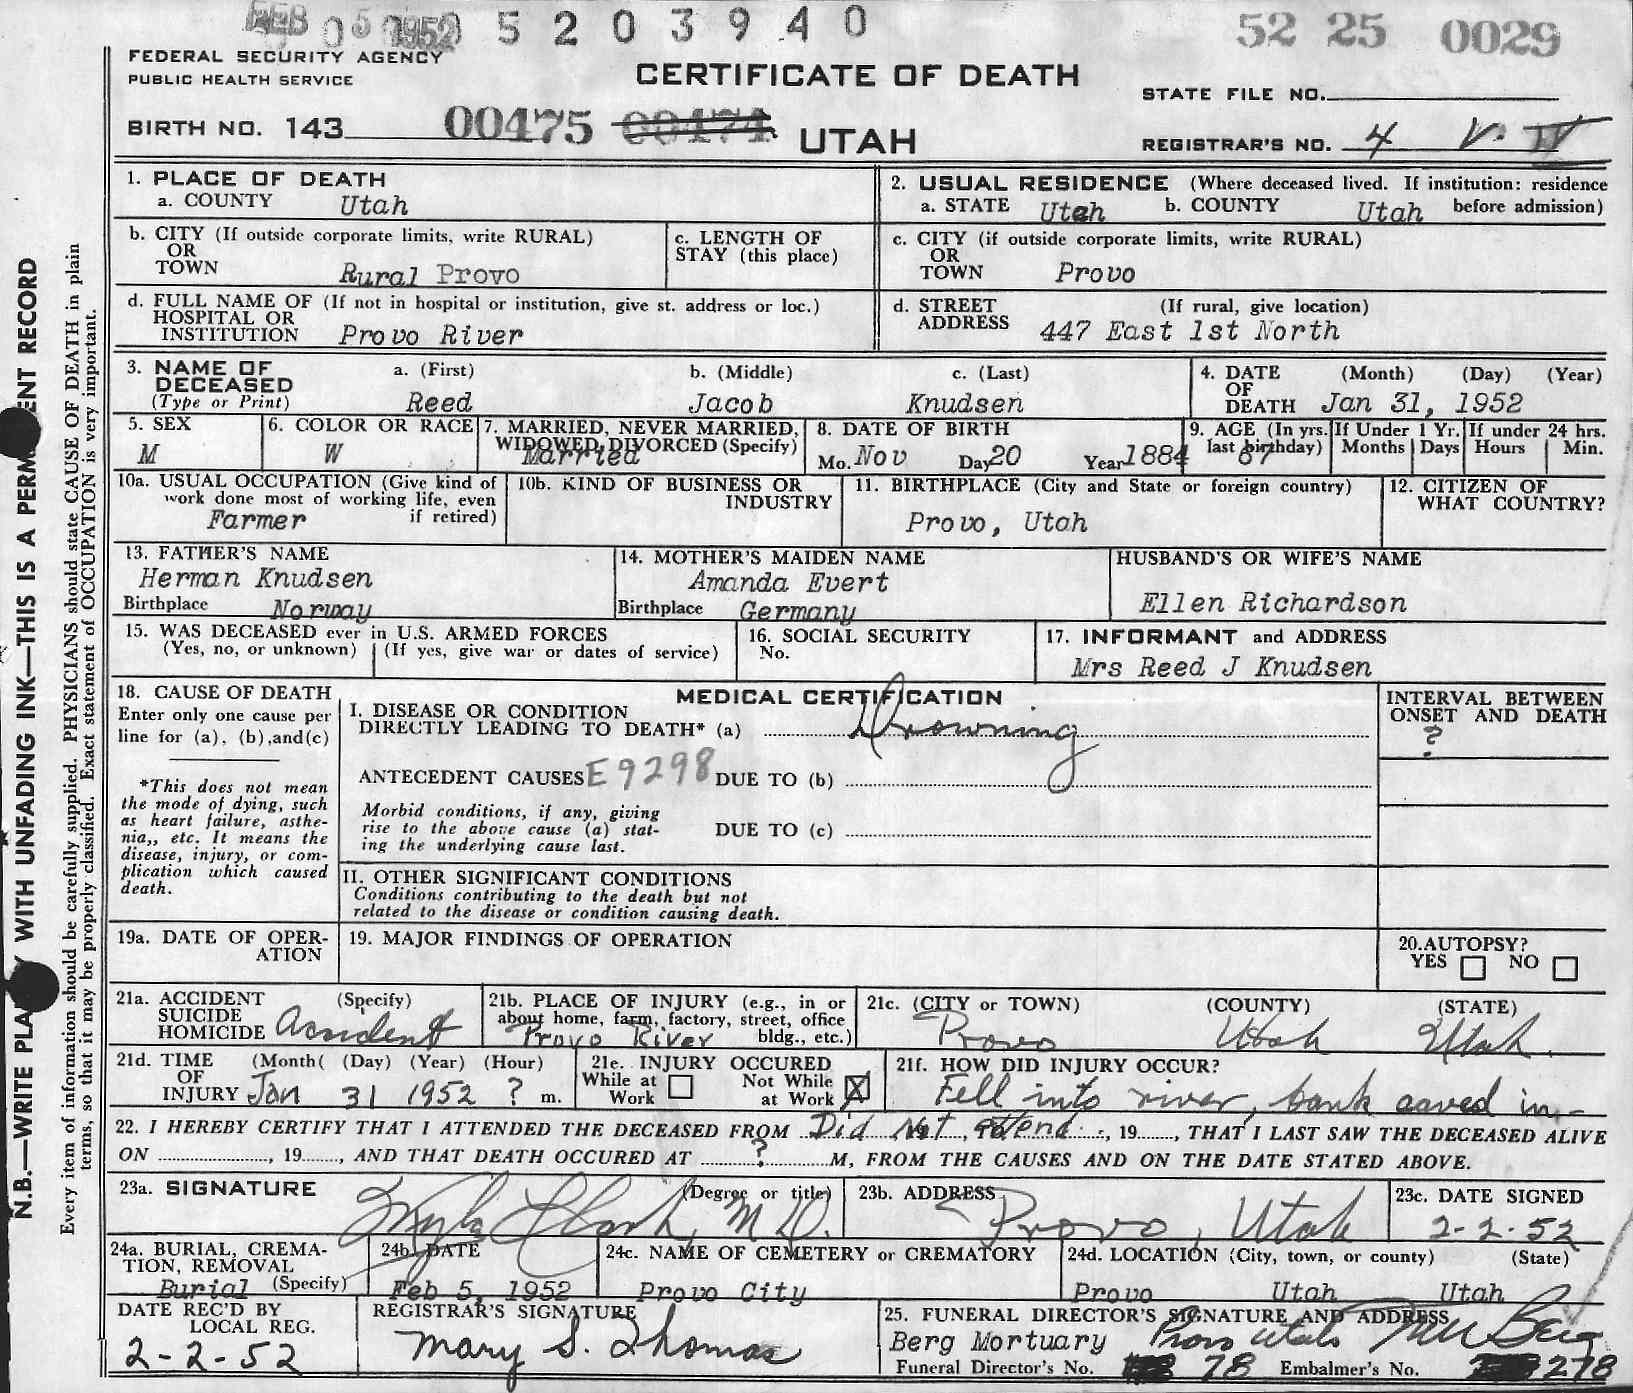 FEB 05 1952 5203940 52 25 0029
FEDERAL SECURITY AGENCY
PUBLIC HEALTH SERVICE
CERTIFICATE OF DEATH
STATE FILE NO.
BIRTH NO. 143 00475 00474 UTAH
REGISTRAR'S NO. 4 V. IV
1. PLACE OF DEATH
a. COUNTY Utah
2. USUAL RESIDENCE (Where deceased lived. If institution: residence before admission)
a. STATE Utah b. COUNTY Utah
b. CITY (If outside corporate limits, write RURAL)
OR
TOWN Rural Provo
c. LENGTH OF
STAY (this place)
c. CITY (if outside corporate limits, write RURAL)
OR
TOWN Provo
d. FULL NAME OF (If not in hospital or institution, give st. address or loc.)
HOSPITAL OR
INSTITUTION Provo River
d. STREET (If rural, give location)
ADDRESS 447 East 1st North
3. NAME OF a. (First) b. (Middle) c. (Last)
DECEASED
(Type or Print) Reed Jacob Knudsen
4. DATE (Month) (Day) (Year)
OF
DEATH Jan 31, 1952
5. SEX
M
6. COLOR OR RACE
W
7. MARRIED, NEVER MARRIED,
WIDOWED, DIVORCED (Specify)
Married
8. DATE OF BIRTH
Mo. Nov Day 20 Year 1884
9. AGE (In yrs. last birthday) 67
If Under 1 Yr.
Months Days
If under 24 hrs.
Hours Min.
10a. USUAL OCCUPATION (Give kind of
work done most of working life, even
if retired)
Farmer
10b. KIND OF BUSINESS OR
INDUSTRY
11. BIRTHPLACE (City and State or foreign country)
Provo, Utah
12. CITIZEN OF
WHAT COUNTRY?
13. FATHER'S NAME
Herman Knudsen
Birthplace Norway
14. MOTHER'S MAIDEN NAME
Amanda Evert
Birthplace Germany
HUSBAND'S OR WIFE'S NAME
Ellen Richardson
15. WAS DECEASED ever in U.S. ARMED FORCES
(Yes, no, or unknown) (If yes, give war or dates of service)
16. SOCIAL SECURITY
No.
17. INFORMANT and ADDRESS
Mrs Reed J Knudsen
18. CAUSE OF DEATH
Enter only one cause per
line for (a), (b), and (c)
*This does not mean
the mode of dying, such
as heart failure, asthe-
nia,, etc. It means the
disease, injury, or com-
plication which caused
death.
MEDICAL CERTIFICATION
I. DISEASE OR CONDITION
DIRECTLY LEADING TO DEATH* (a) Drowning
ANTECEDENT CAUSES E9298 DUE TO (b)
Morbid conditions, if any, giving
rise to the above cause (a) stat-
ing the underlying cause last.
DUE TO (c)
II. OTHER SIGNIFICANT CONDITIONS
Conditions contributing to the death but not
related to the disease or condition causing death.
INTERVAL BETWEEN
ONSET AND DEATH
?
19a. DATE OF OPER-
ATION
19. MAJOR FINDINGS OF OPERATION
20. AUTOPSY?
YES NO
21a. ACCIDENT (Specify)
SUICIDE
HOMICIDE Accident
21b. PLACE OF INJURY (e.g., in or
about home, farm, factory, street, office
bldg., etc.)
Provo River
21c. (CITY or TOWN) (COUNTY) (STATE)
Provo Utah Utah.
21d. TIME (Month( (Day) (Year) (Hour)
OF
INJURY Jan 31 1952 ? m.
21e. INJURY OCCURED
While at Work Not While at Work X
21f. HOW DID INJURY OCCUR?
Fell into river, bank caved in.-
22. I HEREBY CERTIFY THAT I ATTENDED THE DECEASED FROM Did Not attend, 19......, THAT I LAST SAW THE DECEASED ALIVE
ON ............, 19......, AND THAT DEATH OCCURED AT ....?....M, FROM THE CAUSES AND ON THE DATE STATED ABOVE.
23a. SIGNATURE (Degree or title)
Clark, M.D.
23b. ADDRESS
Provo, Utah
23c. DATE SIGNED
2-2-52
24a. BURIAL, CREMA-
TION, REMOVAL
(Specify)
Burial
24b. DATE
Feb 5, 1952
24c. NAME OF CEMETERY or CREMATORY
Provo City
24d. LOCATION (City, town, or county) (State)
Provo Utah Utah
DATE REC'D BY
LOCAL REG.
2-2-52
REGISTRAR'S SIGNATURE
Mary S. Thomas
25. FUNERAL DIRECTOR'S SIGNATURE AND ADDRESS
Berg Mortuary Provo Utah Berg
Funeral Director's No. 78 Embalmer's No. 278
N.B.—WRITE PLA WITH UNFADING INK—THIS IS A PERM ENT RECORD
Every item of information should be carefully supplied. PHYSICIANS should state CAUSE OF DEATH in plain
terms, so that it may be properly classified. Exact statement of OCCUPATION is very important.